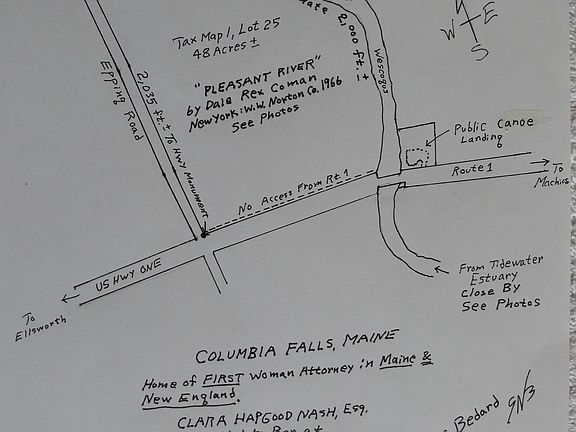 2,000 ft. ±
Wescogus
W
E
S
Tax Map 1, Lot 25
48 Acres ±
"PLEASANT RIVER"
by Dale Rex Coman
New York: W.W. Norton Co. 1966
See Photos
Epping Road
2,035 ft. ± To Hwy Monument
Public Canoe
Landing
To
Machias
Route 1
No Access From Rt. 1
US HWY ONE
To
Ellsworth
From Tidewater
Estuary
Close By
See Photos
COLUMBIA FALLS, MAINE
Home of FIRST Woman Attorney in Maine &
New England.
CLARA HAPGOOD NASH, Esq.
Bedard